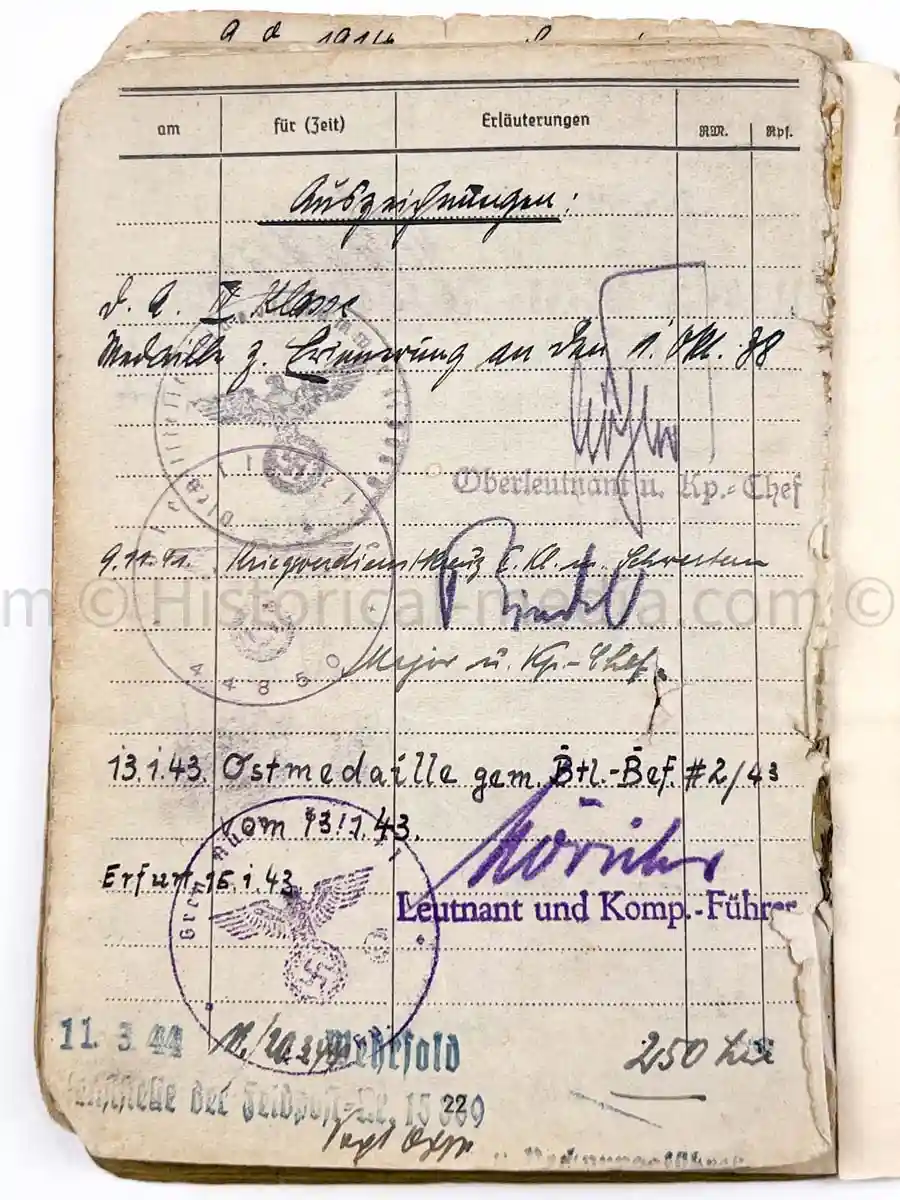 am für (Zeit) Erläuterungen RM. Rpf.
Auszeichnungen:
D. A. IV Klasse
Medaille z. Erinnerung an den 1. Okt. 38
Oberleutnant u. Kp.-Chef
9.11.41. Kriegsverdienstkreuz 2. Kl. m. Schwertern
m © Historical-media.com ©
44850
Major u. Kp.-Chef.
13.1.43. Ostmedaille gem. Btl.-Bef. #2/43
vom 13.1.43.
Erfurt, 15.1.43
Leutnant und Komp.-Führer
11. 3. 44 Wehrsold 250 Lei
der Feldpost-Nr.
22